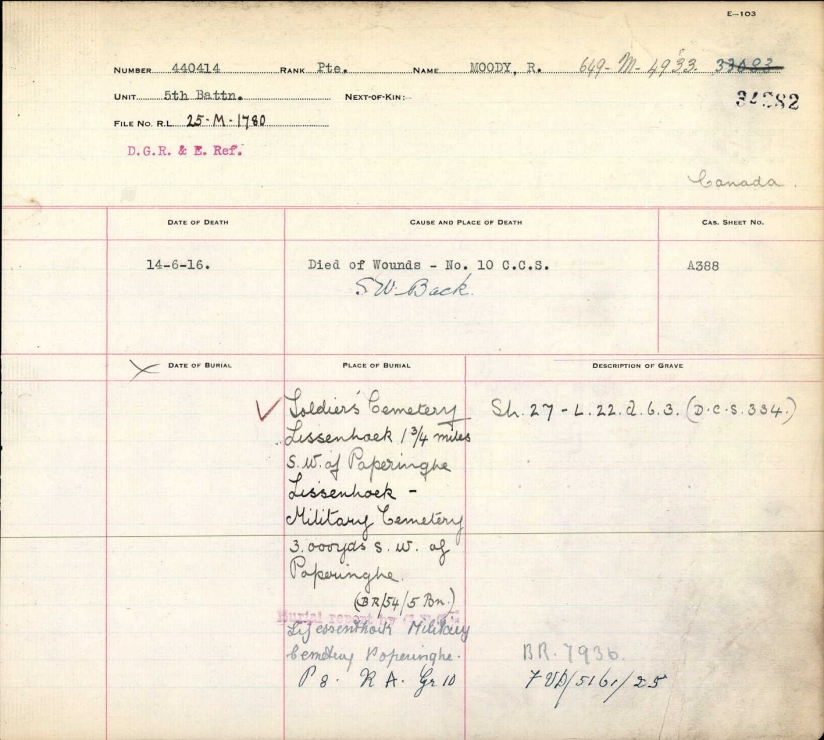 E—103
NUMBER 440414 RANK Pte. NAME MOODY, R. 649-M-4933.
UNIT 5th Battn. NEXT-OF-KIN:-
FILE NO. R.L. 25-M-1780
D.G.R. & E. Ref.
Canada.
DATE OF DEATH CAUSE AND PLACE OF DEATH CAS. SHEET NO.
14-6-16. Died of Wounds - No. 10 C.C.S. A388
S.W. Back.
DATE OF BURIAL PLACE OF BURIAL DESCRIPTION OF GRAVE
Soldiers' Cemetery Sh. 27 - L.22.d.6.3. (D.C.S.334.)
Lissenhoek 1 3/4 miles
S.W. of Poperinghe
Lissenhoek -
Military Cemetery
3.000yds S.W. of
Poperinghe.
(BR/54/5 Bn.)
Burial report by
Lijssenthoek Military
Cemetery Poperinghe. BR. 7936.
P 8. R A. Gr 10